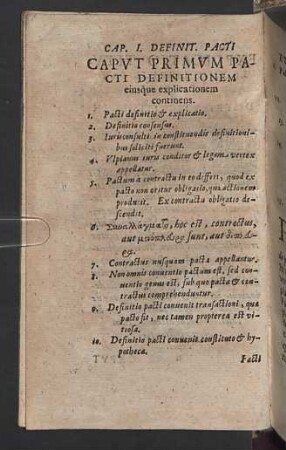 CAP. I. DEFINIT. PACTI
CAPVT PRIMVM PA-
CTI DEFINITIONEM
eiusque explicationem
continens.
1. Pacti definitio & explicatio.
2. Definitio consensus.
3. Iurisconsulti in constituendis definitioni-
bus soliciti fuerunt.
4. Vlpianus iuris conditor & legum vertex
appellatur.
5. Pactum à contractu in eo differt, quod ex
pacto non oritur obligatio, quæ actionem
producit. Ex contractu obligatio de-
scendit.
6. hoc est, contractus,
aut sunt, aut
7. Contractus nusquam pacta appellantur.
8. Non omnis conuentio pactum est, sed con-
uentio genus est, sub quo pacta & con-
tractus comprehenduntur.
9. Definitio pacti conuenit transactioni, quæ
pacto fit, nec tamen propterea est vi-
tiosa.
10. Definitio pacti conuenit constituto & hy-
potheca.
Pacti